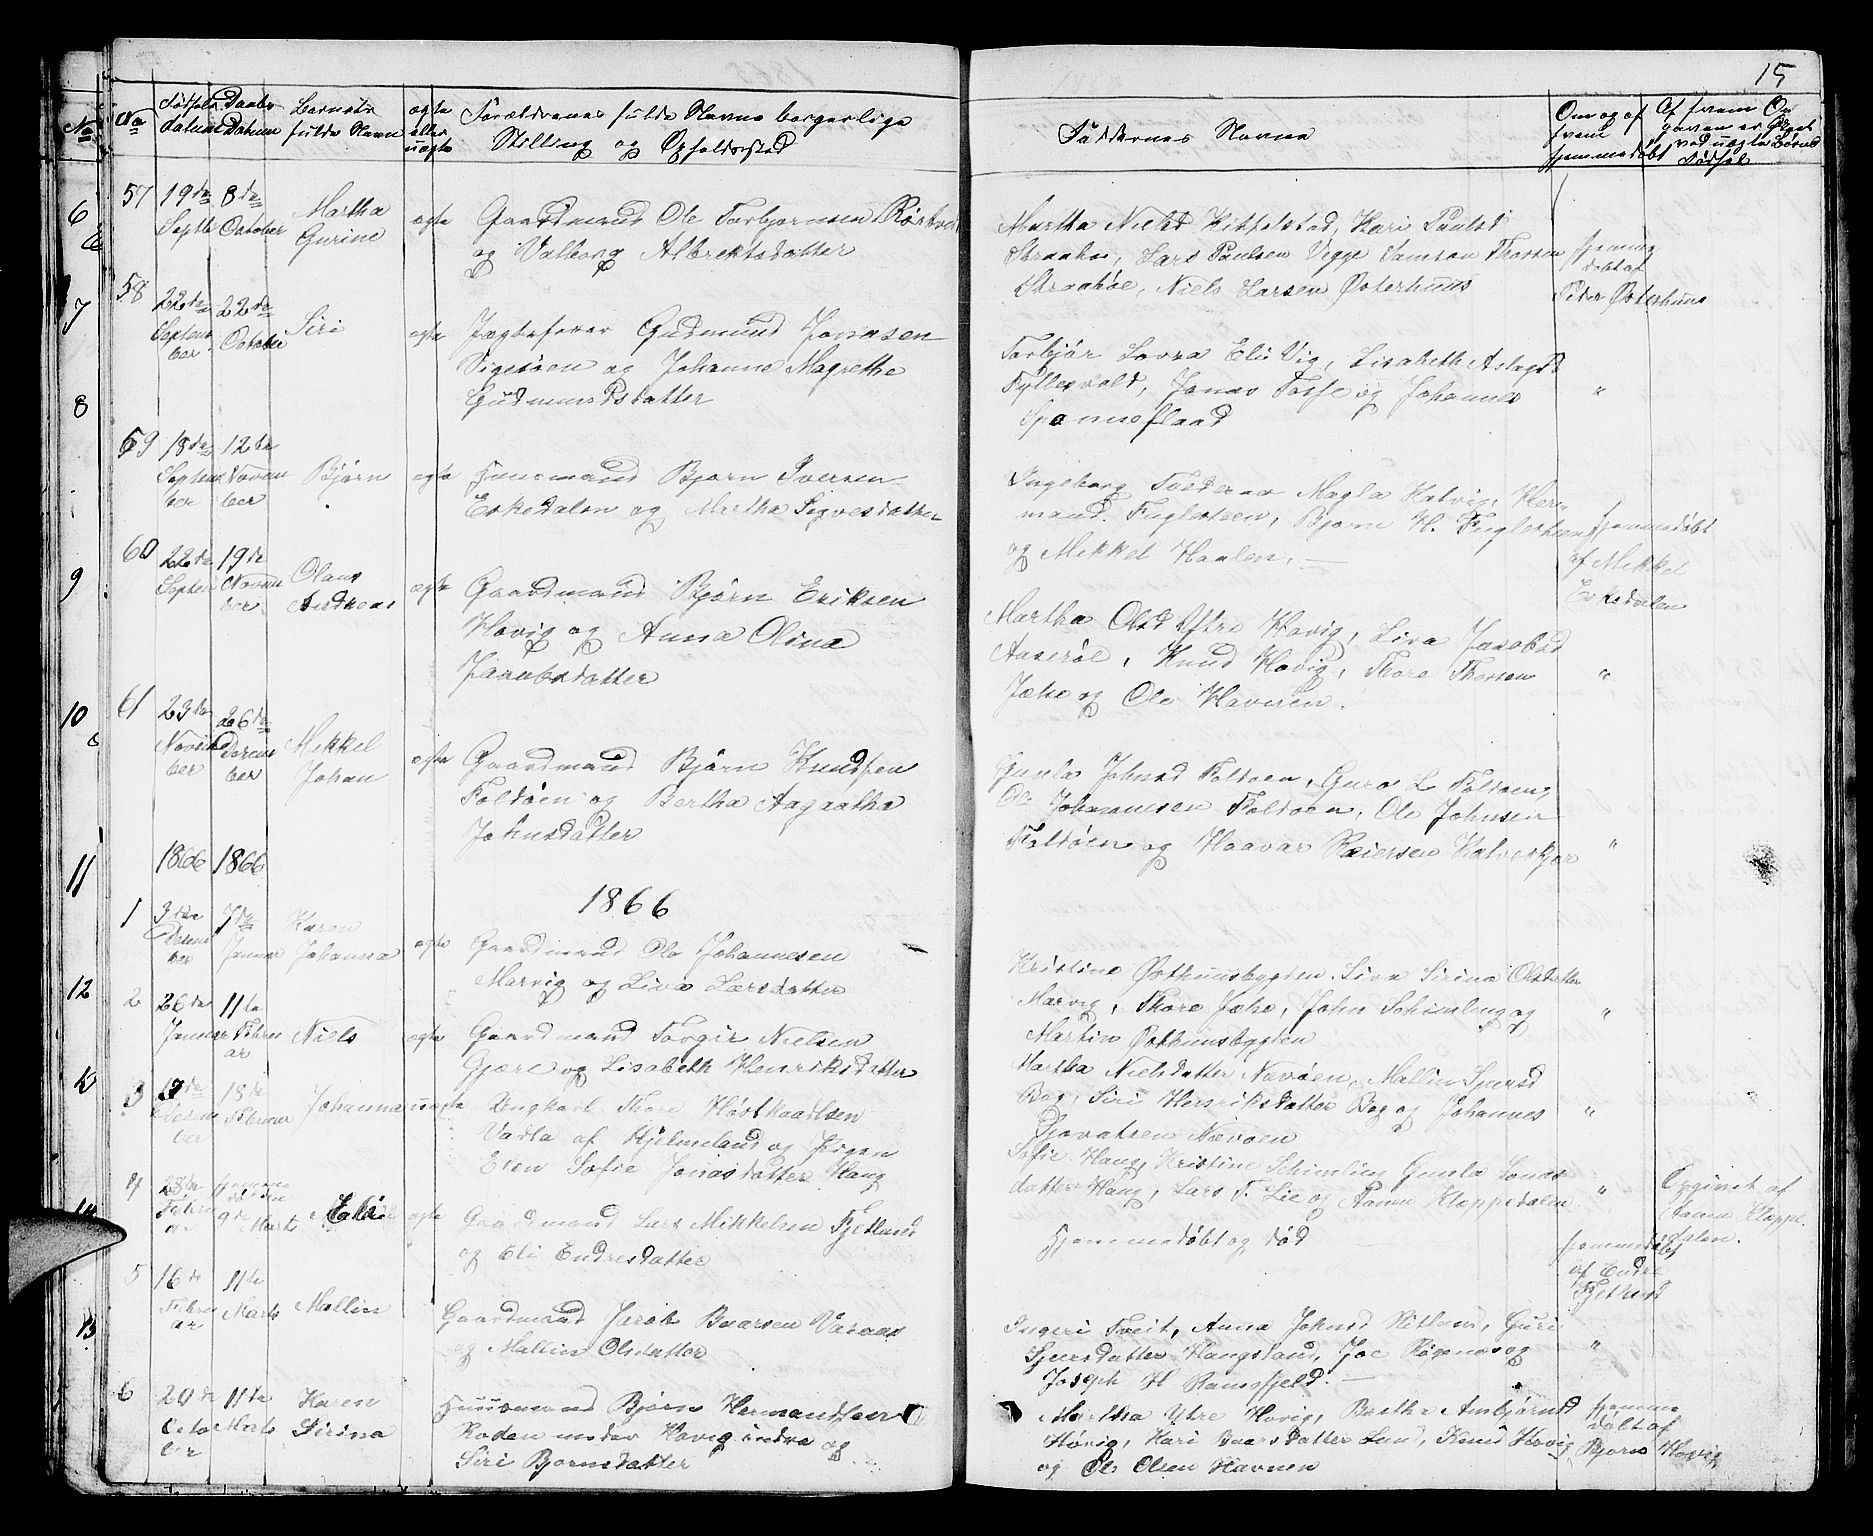 15
No
No
Fødsels datum
Daabs Datum
Barnets fulde Navn
ægte eller uægte
Forældrenes fulde Navne borgerlige
Stilling og Opholdssted
Faddernes Navne
Om og af hvem hjemmedøbt
Af hvem Opgaven er gjort ved uægte Børns Fødsel
57 19de Septb 8de October Martha Gurine ægte
Gaardmand Ole Torbjørnsen
og Valborg Albrektsdatter
Martha Nielsd Kittelstad, Kari Paulsd
Straabø, Lars Paulsen Vigge Samson Thorsen
Straabøe, Niels Larsen Østerhuus
hjemmedøbt af
Peder Østerhuus
58 22de September 22de October Siri ægte
Jægtefører Gudmund Jonasen
Vigesøen og Johanne Magrethe
Gudmundsdatter
Torbjør Lovra Eli Vig, Lisabeth Aslagsd
Fyllesvold, Jonas Tofte og Johannes
Hjemsflaad
"
59 18de September 12te November Bjørn ægte
Huusmand Bjørn Iversen
Eskedalen og Martha Sigvesdatter
Ingeborg Magla Halvig, Hermand
Fuglesteen, Bjørn H. Fuglesteen
og Mikkel Haalen.
hjemmedøbt
af Mikkel
Eskedalen
60 22de Septem 19de November Olaus Andreas ægte
Gaardmand Bjørn Eriksen
Hovig og Anna Olina
Jacobsdatter
Martha Olsd Ytre Hovig, Liva Jacobsd
Aaserøe, Knud Hovig, Thore Thorsen
Jæke og Ole Havnen.
"
61 23de November 26de December Mikkel Johan ægte
Gaardmand Bjørn Knudsen
Foldøen og Bertha Aagaatha
Johnsdatter
Gunla Johnsd Foldøen, Guro L Foldøen,
Ole Johannesen Foldøen, Ole Johnsen
Foldøen og Haavar Reiersen Kalveskjær
"
1866 1866
1866
1 3die December 7de Januar Karen Johanna ægte
Gaardmand Ole Johannesen
Marvig og Liva Larsdatter
Kristine Østhuusbygden. Liva Sirina Olsdatter
Marvig, Thore Jæke, John Schimling og
Martin Østhuusbygden
"
2 26de Januar 11te Februar Niels ægte
Gaardmand Torgir Nielsen
Gjære og Lisabeth Henriksdatter
Martha Nielsdatter Nævøen, Mallin Sjursd
Bog, Siri Henriksdatter Bog og Johannes
Sjovatsen Nævøen
"
3 18de Februar Johanna uægte
Ungkarl Thore Høstkaarlsen
Vadla af Hjelmeland og Pigen
Elen Sofie Jonasdatter Haug
Sofie Haug, Kristine Schimling Gunla Jonasdatter
Haug, Lars T. Lie og Aamn Kloppedalen
"
Opgivet af
Aamn Kloppedalen.
4 28de Februar hjemmedøbt den 9de Marts Eli ægte
Gaardmand Lars Mikkelsen Fjetland
og Eli Endresdatter
Hjemmedøbt og død
hjemmedøbt
af Endre
Fjetland
5 16de Februar 11te Marts Mallin
Gaardmand Jacob Baarsen
og Mallin Olsdatter
Ingeri Tveit, Anna Johnsd Ritland, Guri
Sjursdatter Haugsland, Joe og
Joseph H Ramsfjeld.
"
6 20de October 11te Marts Karen Sirina
Huusmand Bjørn Hermandsen
Roden under Hovig indre og
Siri Bjørnsdatter
Martha Ytre Hovig, Bertha Ambjørnsd
Hovig, Kari Baarsdatter Lund, Knud Hovig
og Ole Olsen Havnen
hjemmedøbt af
Bjørn Hovig
6
7
8
9
10
11
12
13